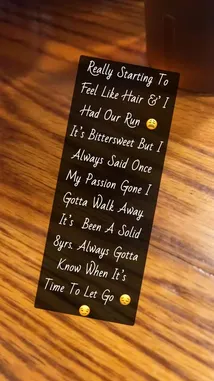 Really Starting To
Feel Like Hair & I
Had Our Run 😩
It's Bittersweet But I
Always Said Once
My Passion Gone I
Gotta Walk Away.
It's Been A Solid
8yrs. Always Gotta
Know When It's
Time To Let Go 😔
😔